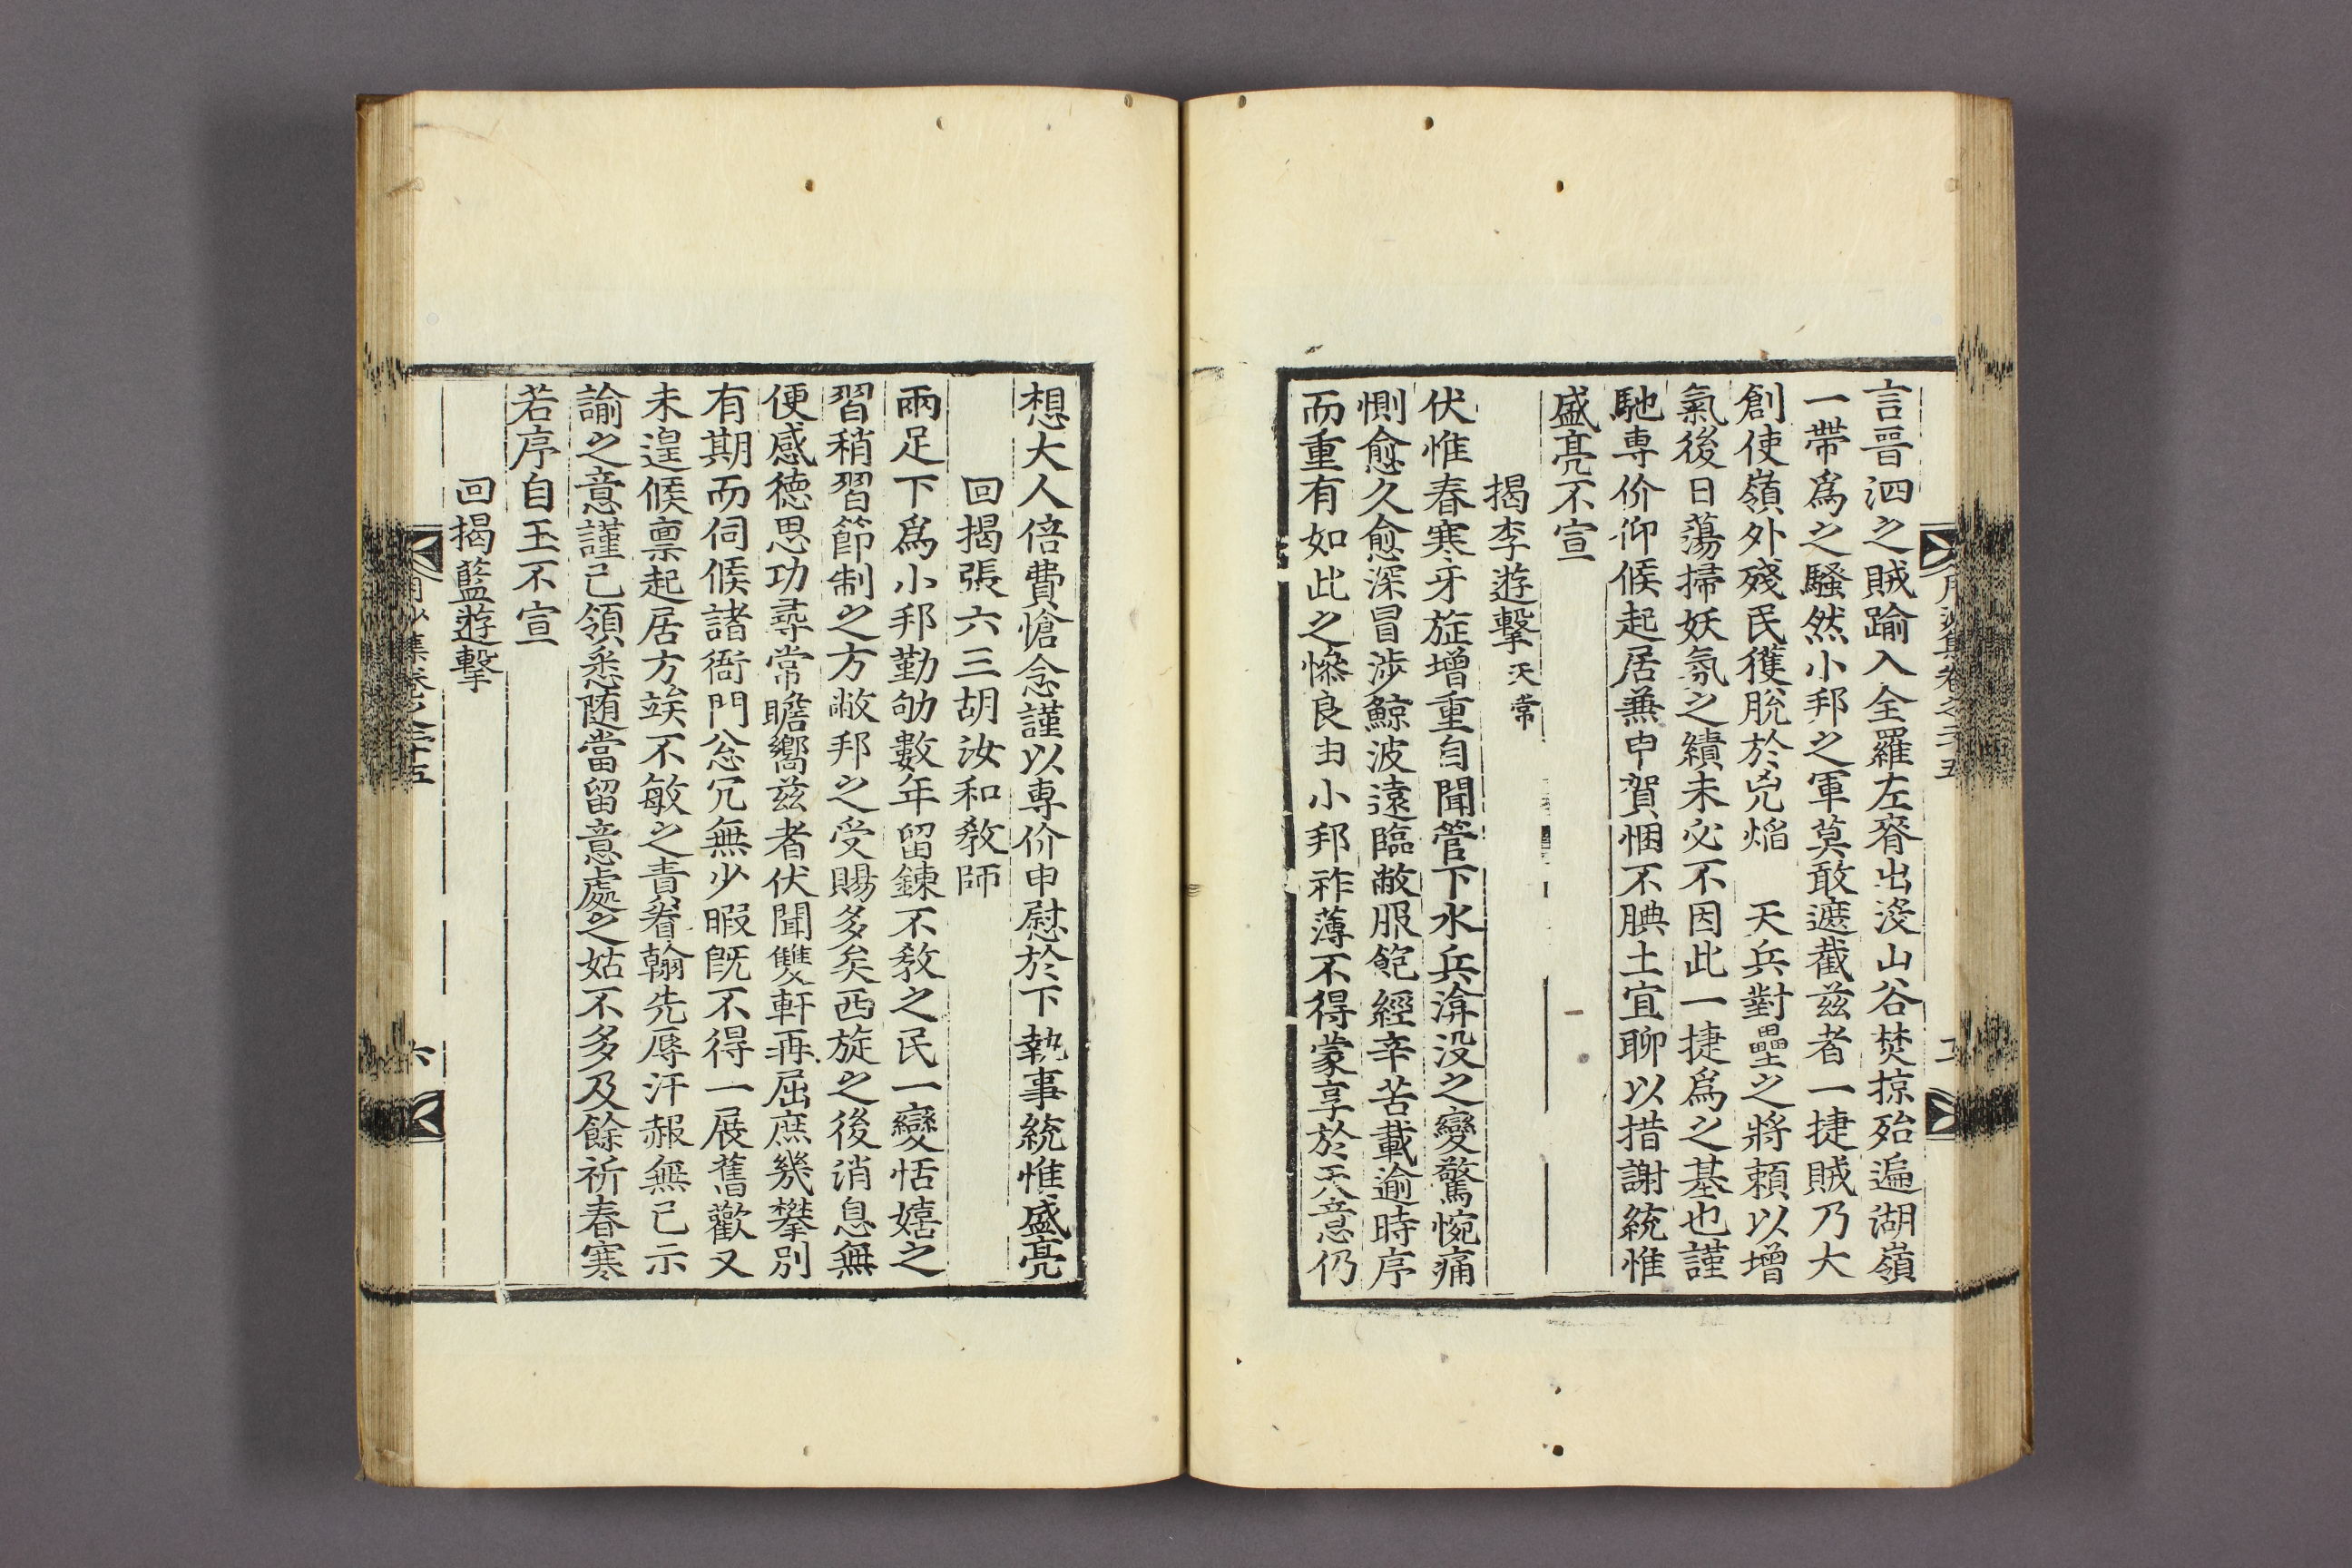 言晉泗之賊踰入全羅左脊出沒山谷焚掠殆遍湖嶺
一帶爲之騷然小邦之軍莫敢遮截兹者一捷賊乃大
創使嶺外殘民獲脫於兇焰 天兵對壘之將賴以增
氣後日蕩掃妖氛之績未必不因此一捷爲之基也謹
馳専价仰候起居兼申賀悃不腆土宜聊以揩謝統惟
盛亮不宣
揭李遊擊 天常
伏惟春寒牙旋增重自聞管下水兵渰没之變驚惋痛
惻愈久愈深冒涉鯨波遠臨敝服飽經辛苦載逾時序
而重有如此之慘良由小邦祚薄不得蒙享於天意仍
想大人倍費愴念謹以専价申慰於下執事統惟盛亮
回揭張六三胡汝和教師
兩足下爲小邦勤劬數年留鍊不教之民一變恬嬉之
習稍習節制之方敝邦之受賜多矣西旋之後消息無
便感德思功尋常瞻嚮兹者伏聞雙軒再屈庶幾攀別
有期而伺候諸衙門忩冗無少暇既不得一展舊歡又
未遑候禀起居方竢不敏之責眷翰先辱汗赧無已示
諭之意謹已領悉随當留意處之姑不多及餘祈春寒
若序自玉不宣
回揭藍遊擊
月沙集卷之三十五
六